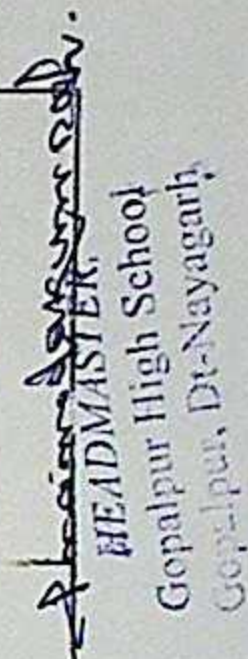 HEADMASTER,
Gopalpur High School
Gopalpur, Dt-Nayagarh